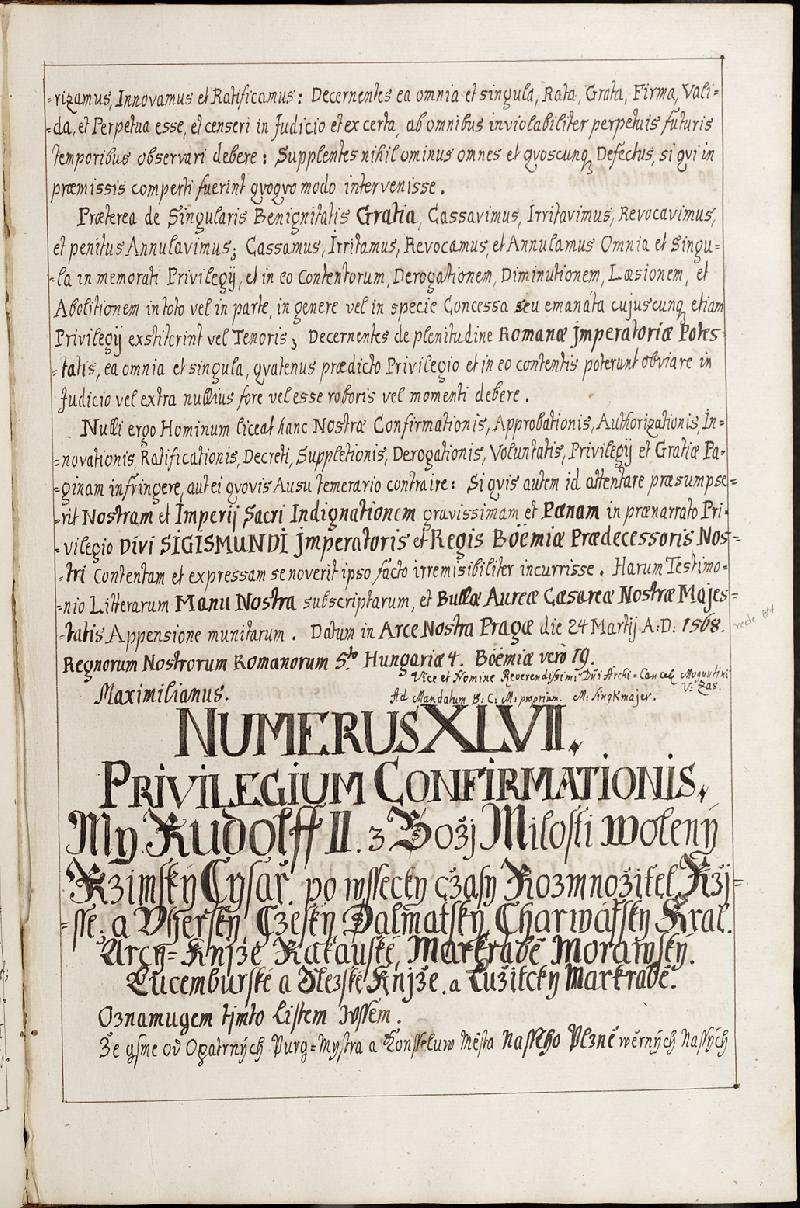 =rizamus, Innovamus et Ratificamus: Decernentes ea omnia et singula, Rata, Grata, Firma, Vali=
=da, et Perpetua esse, et censeri in Judicio et ex certa, ab omnibus inviolabiliter perpetuis futuris
temporibus observari debere: Supplentes nihilominus omnes et quoscunq, Defectus, si qui in
præmissis comperti fuerint quoquo modo intervenisse.
Præterea de Singularis Benignitatis Gratia, Cassavimus, Irritavimus, Revocavimus,
et penitus Annulavimus; Cassamus, Irritamus, Revocamus, et Annulamus Omnia et Singu=
=la in memorati Privilegij, et in eo Contentorum, Derogationem, Diminutionem, Læsionem, et
Abolitionem in toto vel in parte, in genere vel in specie Concessa seu emanata cujuscunq, etiam
Privilegij exstiterint vel Tenoris; Decernentes de plenitudine Romanæ Jmperatoriæ Potes=
=tatis, ea omnia et singula, quatenus prædicto Privilegio et in eo contentis poterunt obviare in
Judicio vel extra nullius fore vel esse roboris vel momenti debere.
Nulli ergo Hominum liceat hanc Nostræ Confirmationis, Approbationis, Authorizationis, In=
=novationis, Ratificationis, Decreti, Suppletionis, Derogationis, Voluntatis, Privilegij et Gratiæ Pa=
=ginam infringere, aut ei quovis Ausu temerario contraire: Si quis autem id attentare præsumpse=
=rit Nostram et Imperij Sacri Indignationem gravissimam et Pœnam in prænarrato Pri=
=vilegio Divi SIGISMUNDI Jmperatoris et Regis Boëmiæ Prædecessoris Nos=
=tri Contentam et expressam se noverit ipso facto irremisibiliter incurrisse. Harum Testimo=
=nio Litterarum Manu Nostra subscriptarum, et Bullæ Aureæ Cæsareæ Nostræ Majes=
=tatis Appensione munitarum. Datum in Arce Nostra Pragæ die 24 Martij A.D: 1568.
recte 84
Regnorum Nostrorum Romanorum 5to Hungariæ 4. Boëmiæ verò 19.
Vice et Nomine Reverendissimi Dni Archi=Cancel Moguntini
V: Zas.
Maximilianus.
Ad Mandatum S: C: M: proprium. M: Singkmajer.
NUMERUS XLVII.
PRIVILEGIUM CONFIRMATIONIS.
My Rudolff II. z Božj Milosti wolený
Rzimsky Cysař. po wssecky cžasy Rozmnožitel Ržj=
=sse. a Uherský, Cžesky, Dalmatský, Charwátsky Kral.
Arcy=Knjže Rakauské, Markrabě Morawský.
Lucemburské a Slezské Knjže. a Lužitcký Markrabě.
Oznamugem tjmto Listem wssěm.
Že gsme od Opatrných Purg=Mystra a Konsseluw Města Nasseho Plzně wěrných Nassých